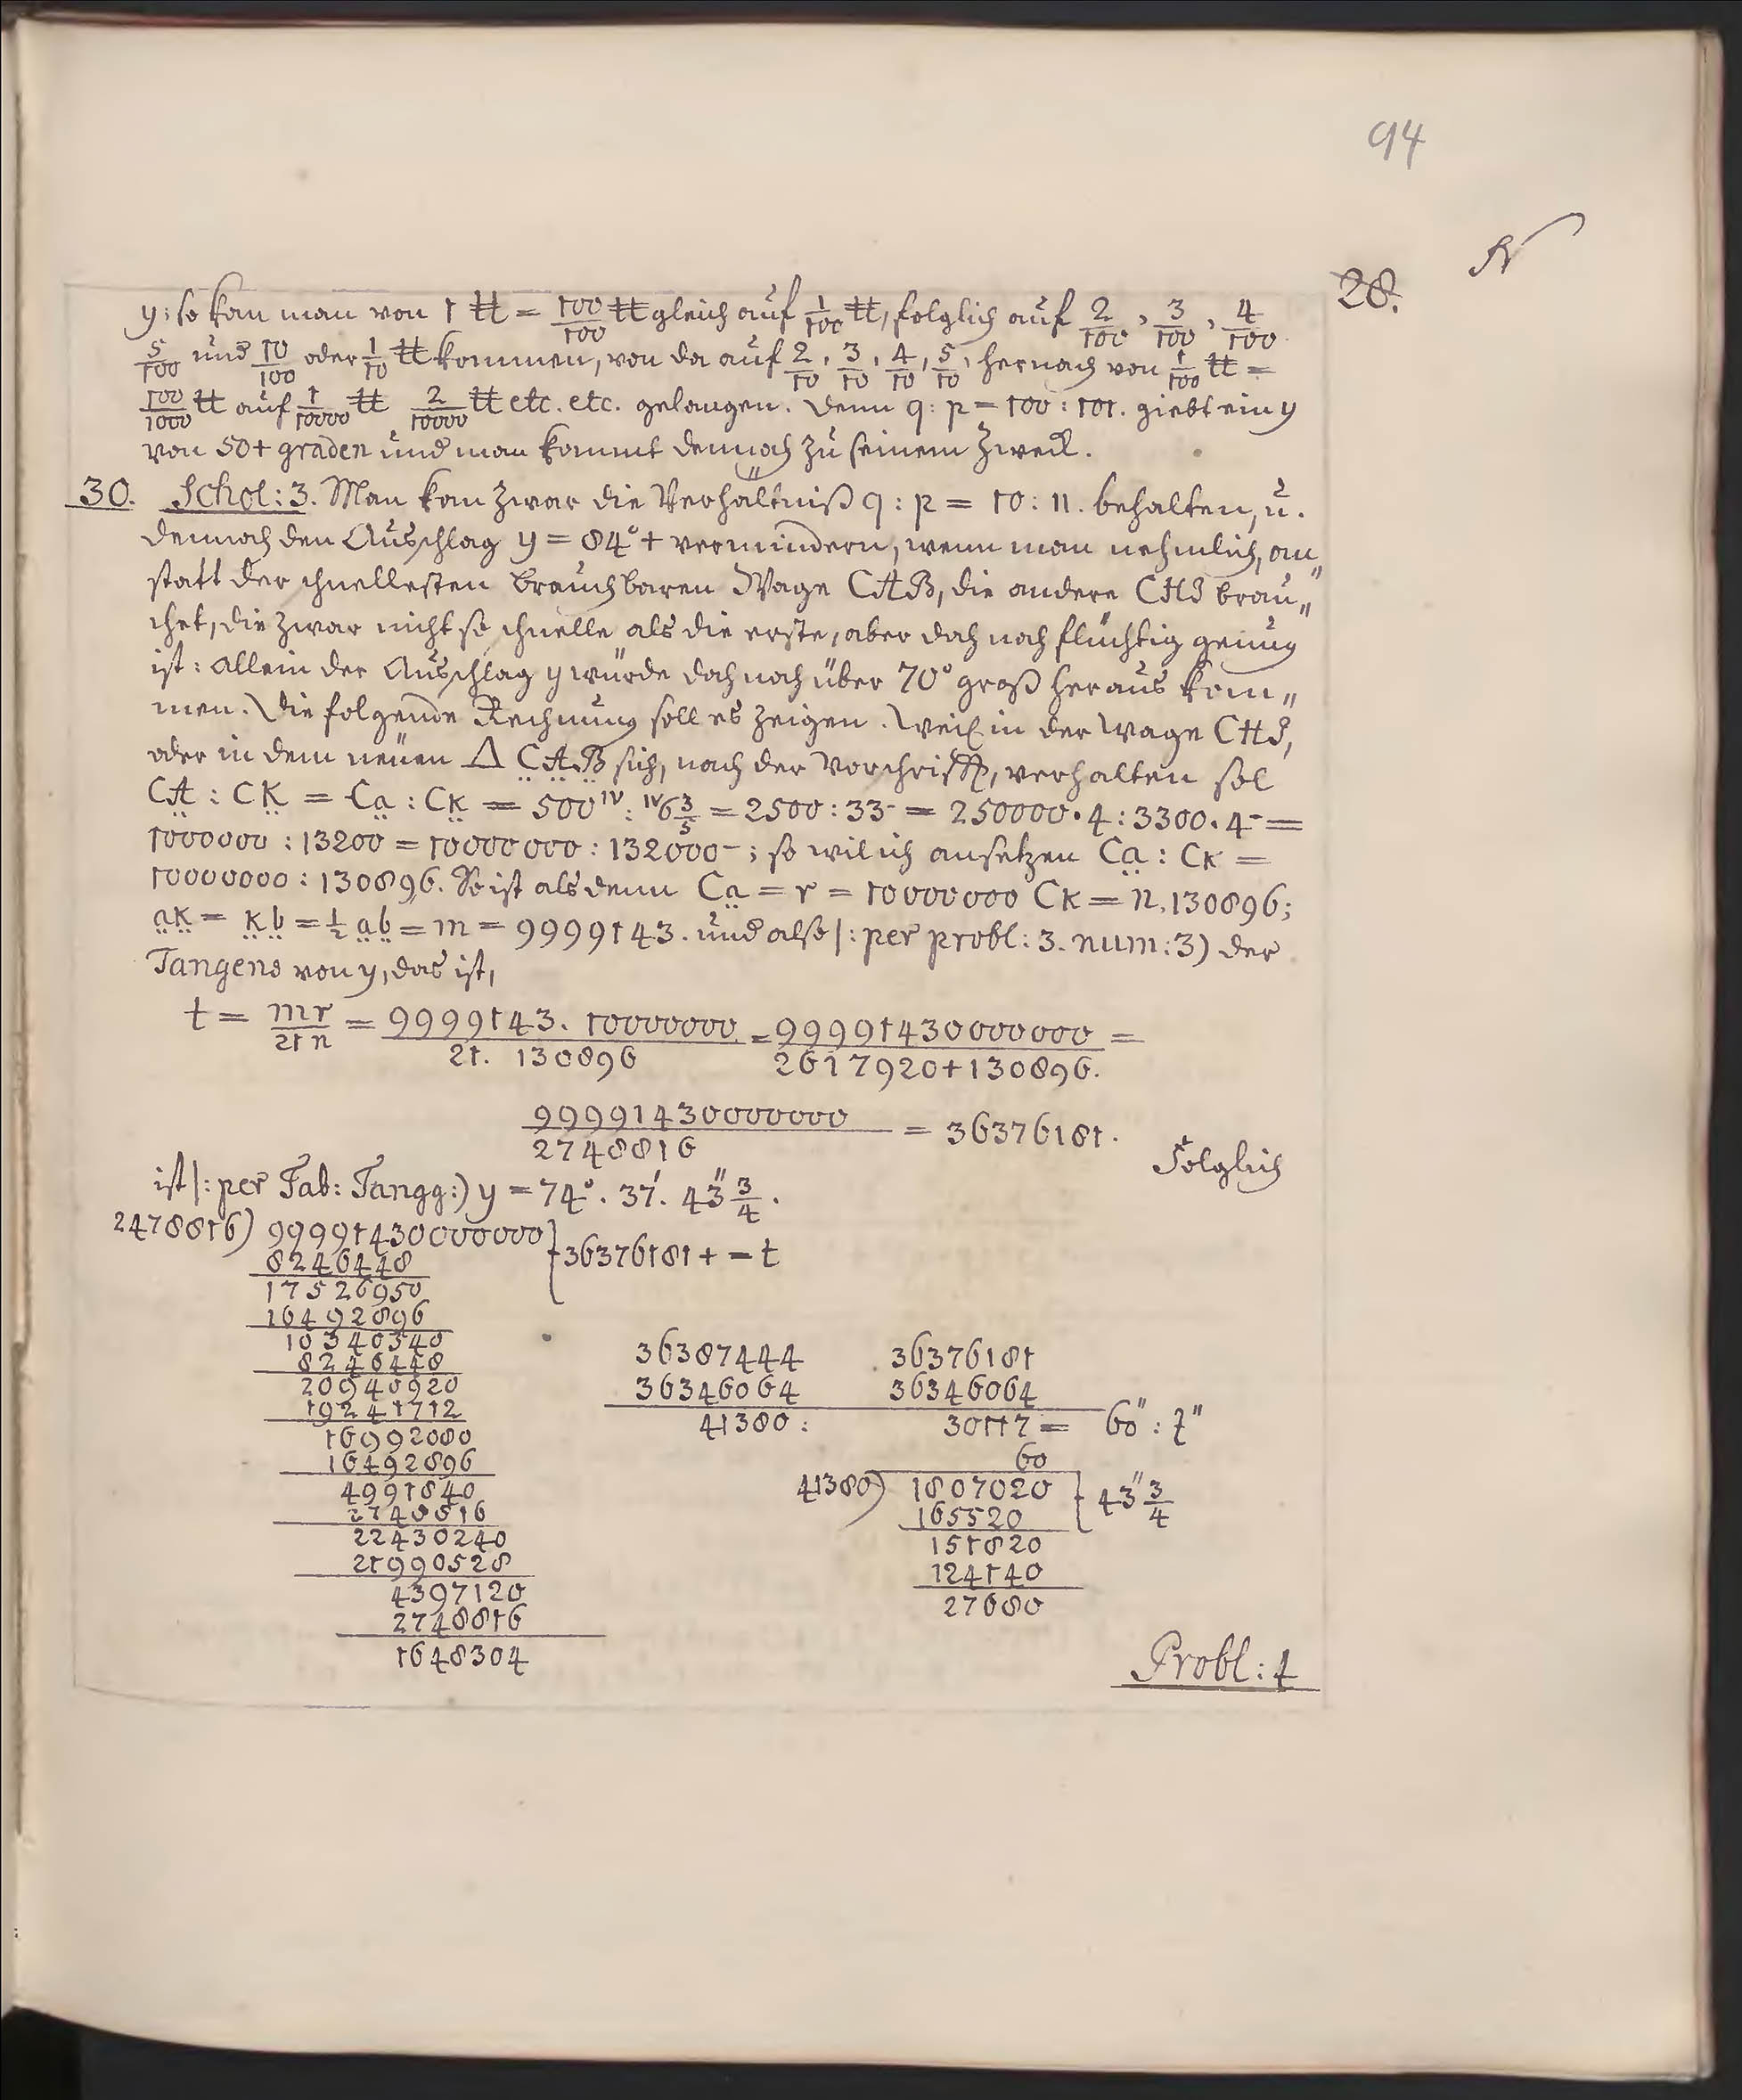 94
28.
y; so kan man von 1 ℔ = 100/100 ℔ gleich auf 1/100 ℔, folglich auf 2/100, 3/100, 4/100
5/100 und 10/100 oder 1/10 ℔ kommen, von da auf 2/10, 3/10, 4/10, 5/10, hernach von 1/100 ℔ =
100/1000 ℔ auf 1/10000 ℔ 2/10000 ℔ etc. etc. gelangen. Denn q : p = 100 : 101. giebt ein y
von 50+ graden und man kommt dennoch zu seinem Zweck.
30. Schol: 3. Man kan zwar die Verhältniß q : p = 10 : 11. behalten, u.
dennoch den Ausschlag y = 84°+ vermindern, wenn man nehmlich, an„
statt der schnellesten brauchbaren Wage CAB, die andere CHJ brau„
chet, die zwar nicht so schnelle als die erste, aber doch noch flüchtig genug
ist: allein der Ausschlag y würde doch noch über 70° groß heraus kom„
men. Die folgende Rechnung soll es zeigen. Weil in der Wage CHJ,
oder in dem neuen Δ C̤A̤B̤ sich, nach der Vorschrifft, verhalten sol
C̤A̤ : C̤K̤ = C̤a̤ : C̤κ̤ = 500ᴵⱽ : ᴵⱽ6 3/5 = 2500 : 33- = 250000 · 4 : 3300 · 4- =
1000000 : 13200 = 10000000 : 132000-; so wil ich ansetzen C̤a̤ : Cκ =
10000000 : 130896. So ist als denn C̤a̤ = r = 10000000 Cκ = n, 130896;
a̤κ̤ = κ̤b̤ = 1/2 a̤b̤ = m = 9999143. und also |: per probl: 3. num: 3) der
Tangens von y, das ist,
t = mr/21n = 9999143. 10000000/21. 130896 = 99991430000000/2617920+130896. =
99991430000000/2748816 = 36376181. Folglich
ist |: per Tab: Tangg:) y = 74°. 37′. 43″ 3/4.
2478816) 99991430000000 } 36376181 + = t
8246448
17526950
16492896
10340540
8246448
20940920
19241712
16992080
16492896
4991840
2748816
22430240
21990528
4397120
2748816
1648304
36387444 36376181
36346064 36346064
41380 : 30117 = 60″ : z″
60
41380) 1807020 } 43″ 3/4
165520
151820
124140
27680
Probl: 4